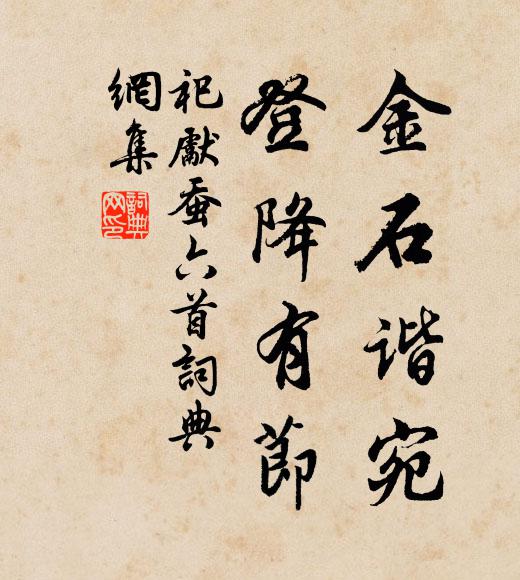 金石谐宛
登降有節
祀獻蚕六首詞典
網集
詞典网印